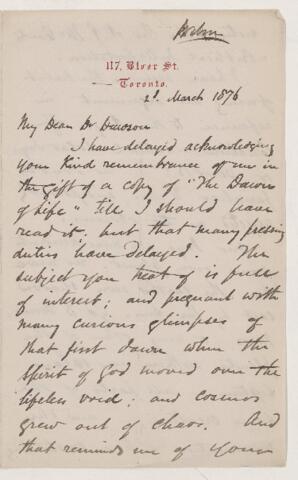 117, Bloor St.
Toronto.
2d. March 1876
My Dear Dr Dawson
I have delayed acknowledging
your kind remembrance of me in
the gift of a copy of "The Dawn
of Life" till I should have
read it; but that many pressing
duties have delayed. The
subject you treat of is full
of interest; and pregnant with
many curious glimpses of
that first dawn when the
Spirit of God moved over the
lifeless void; and cosmos
grew out of chaos. And
that reminds me of your